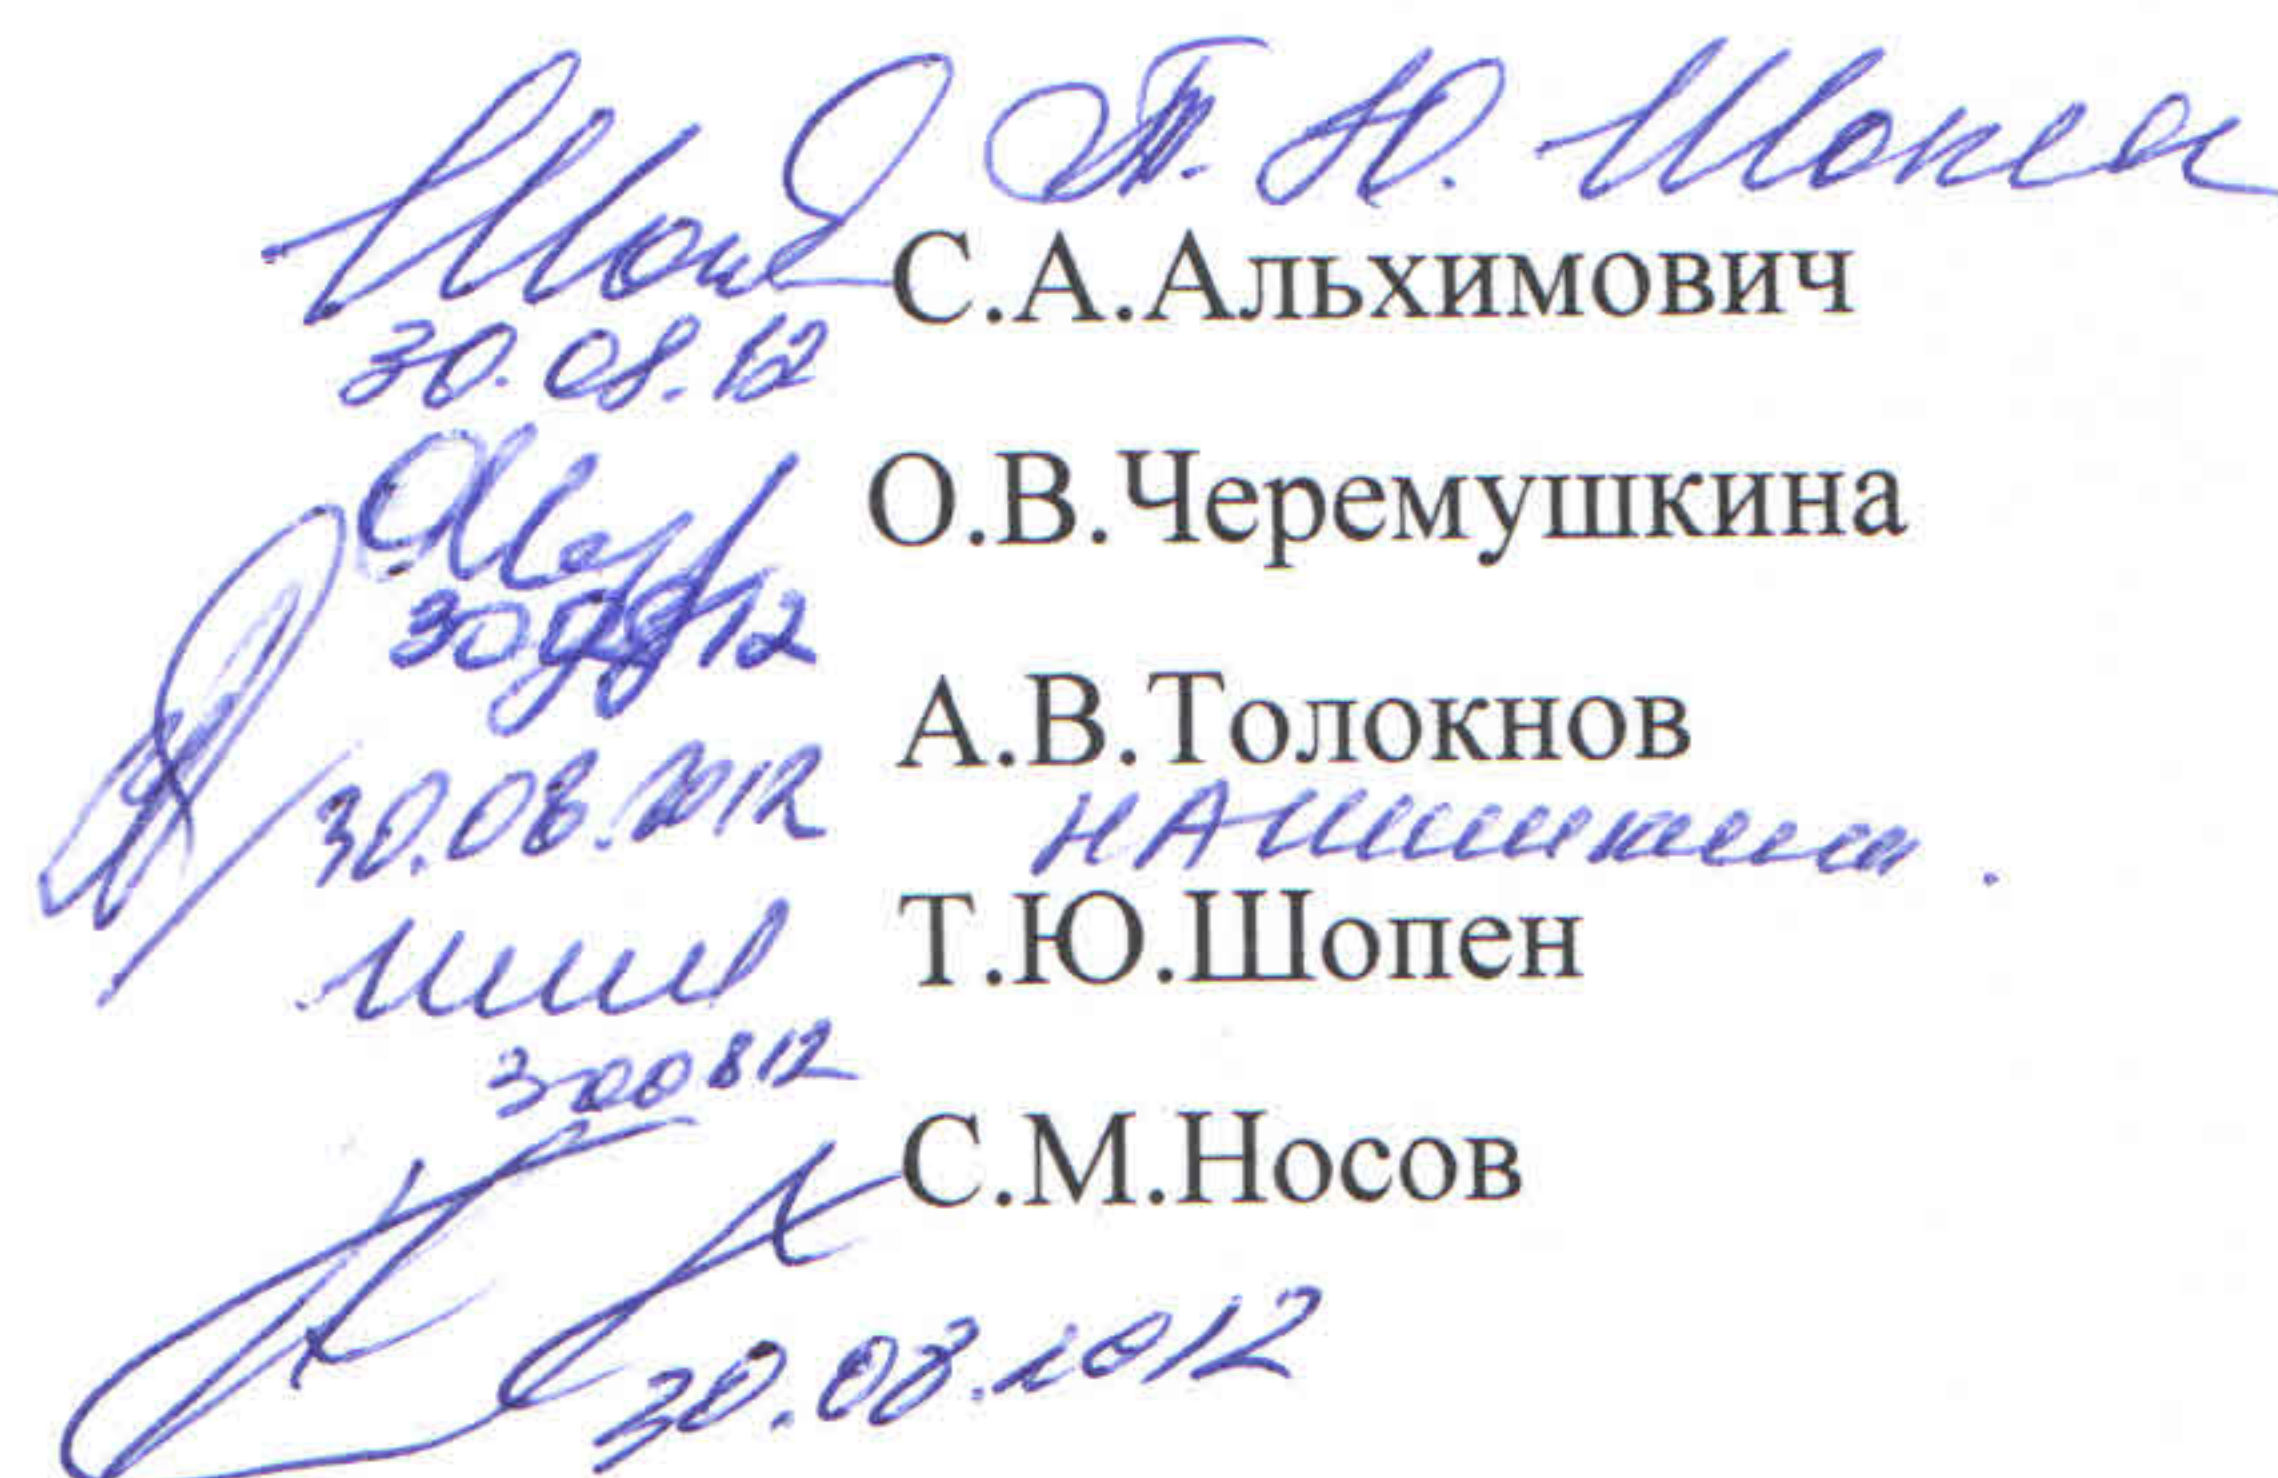 Т. Ю. Шопен
С.А.Альхимович
30.08.12
О.В.Черемушкина
30 08 12
А.В.Толокнов
30.08.2012
Т.Ю.Шопен
300812
С.М.Носов
30.08.2012